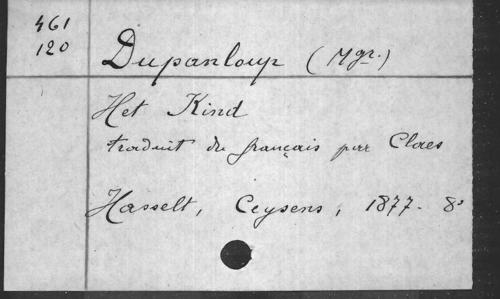 461
120
Dupanloup (Mgr.)
Het Kind
traduit du français par Claes
Hasselt, Ceysens, 1877 - 8°